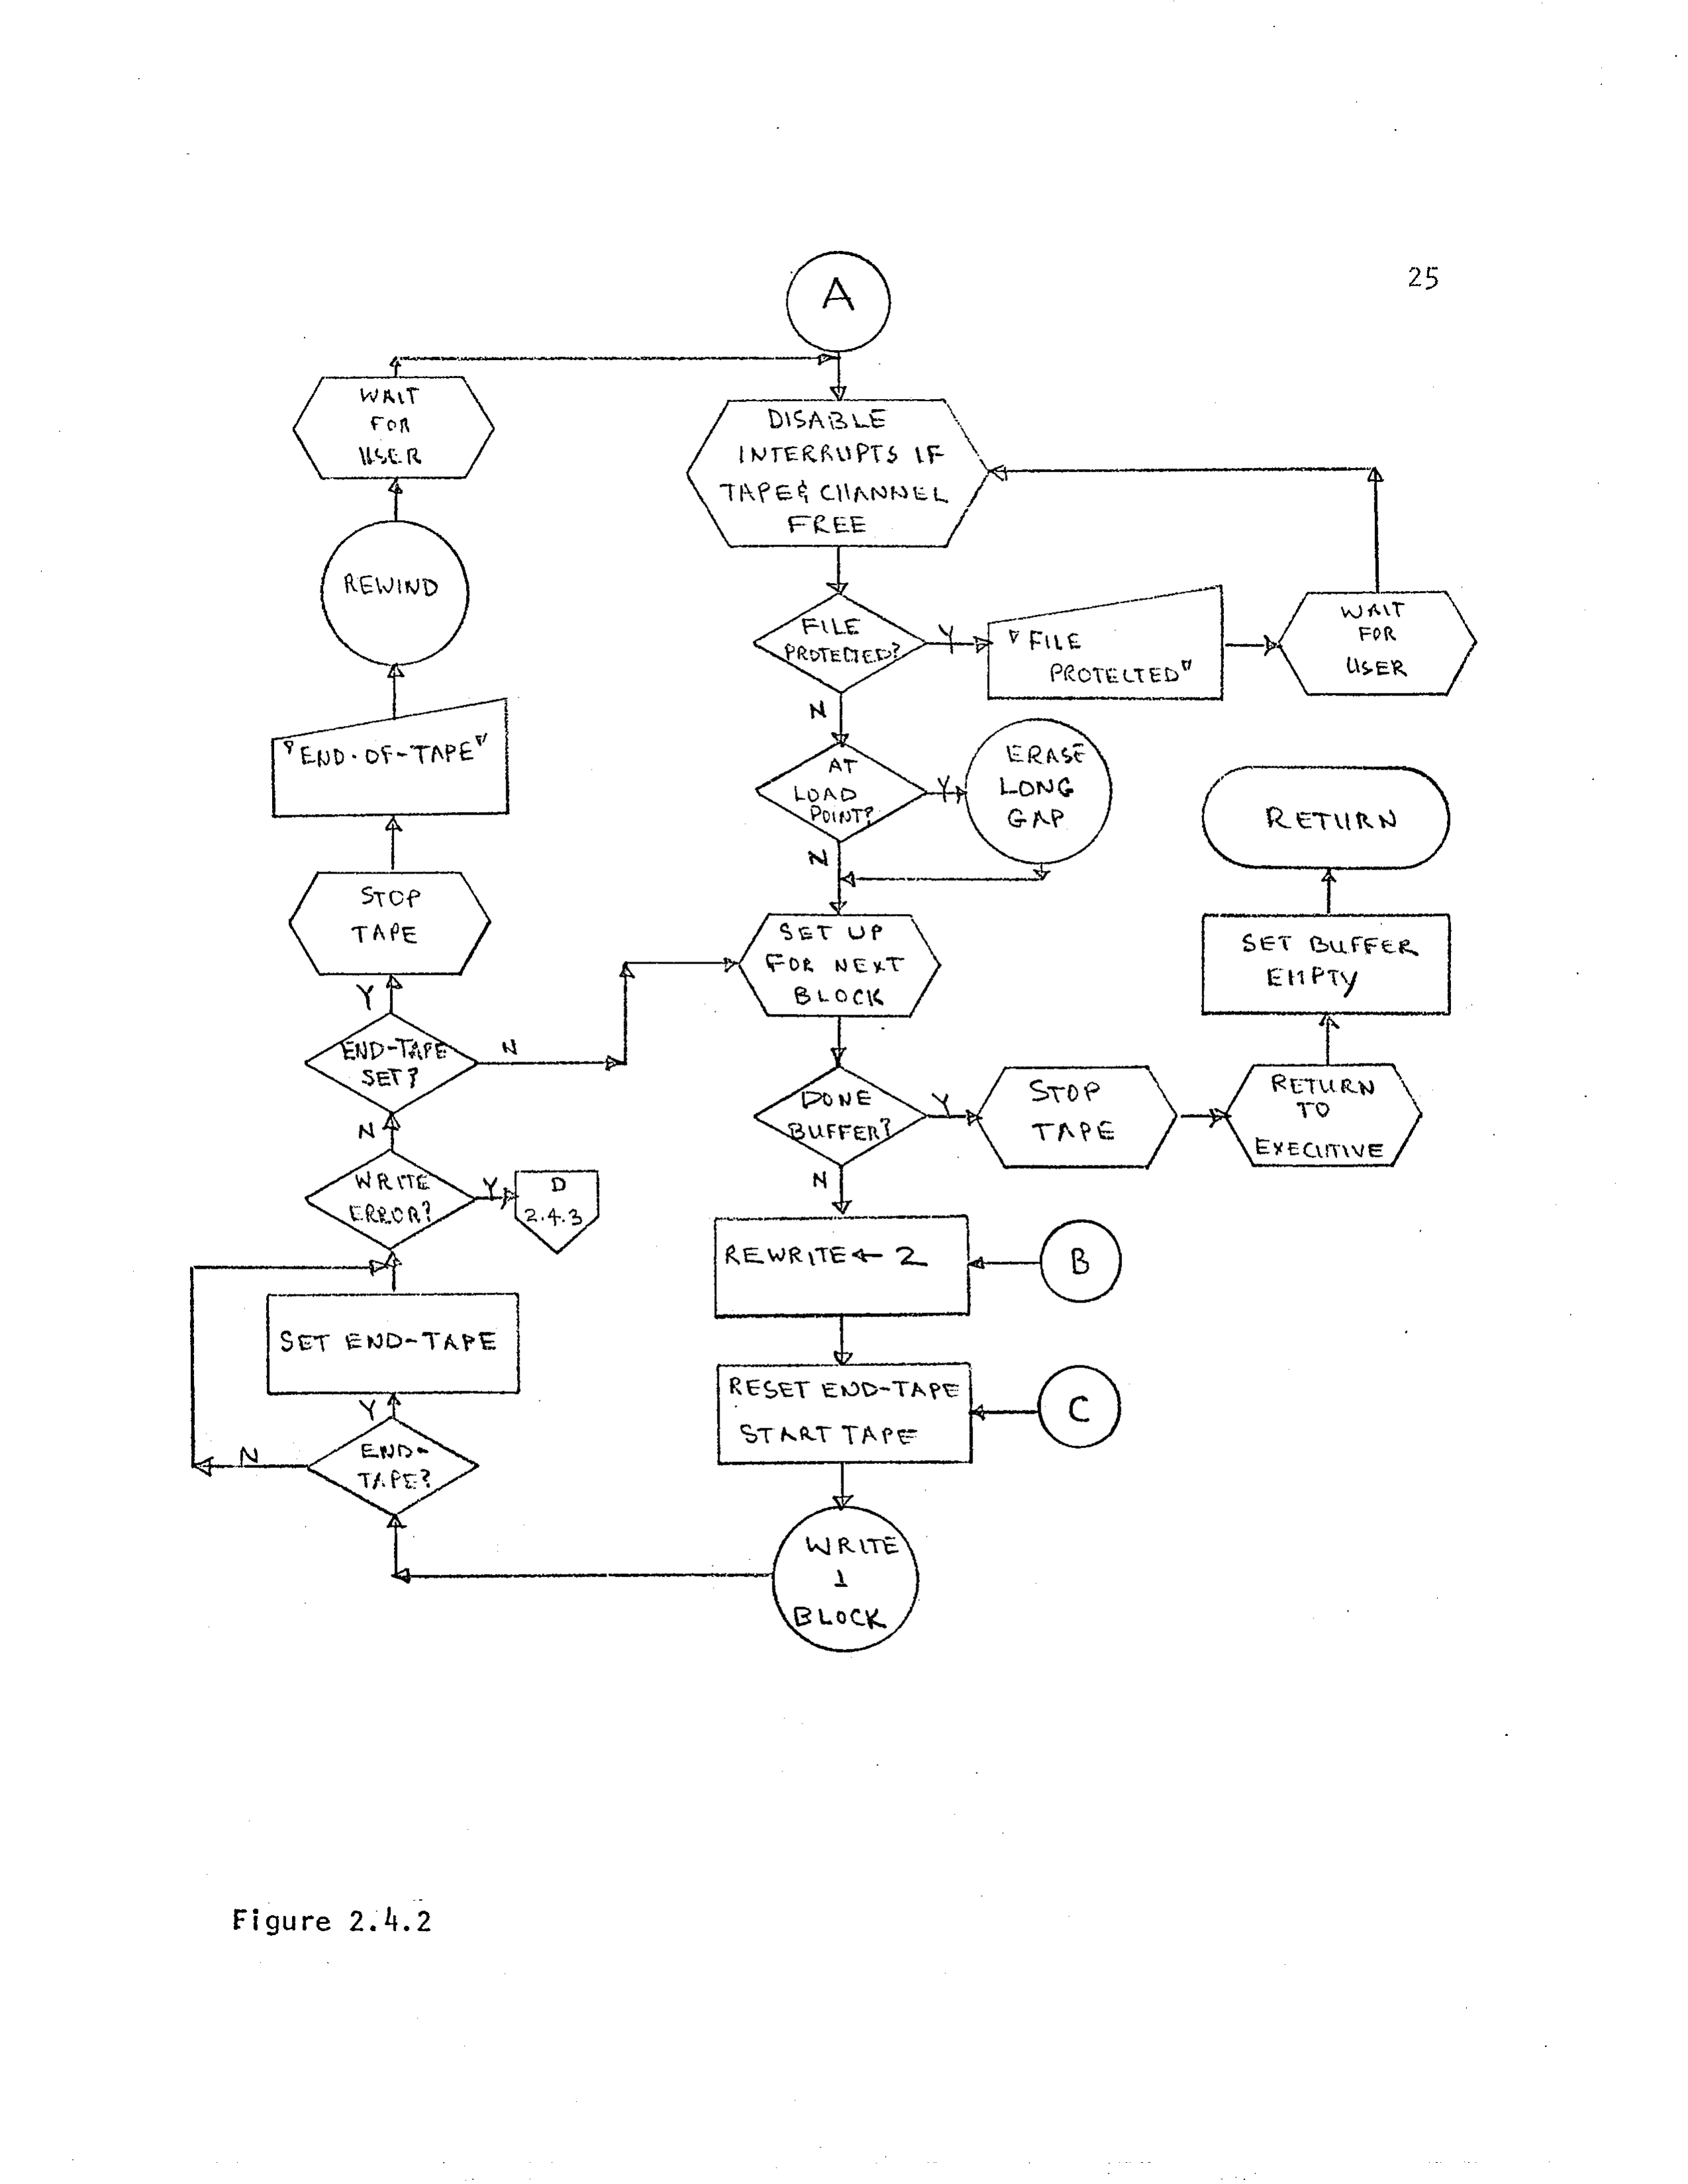 25
A
WAIT
FOR
USER
DISABLE
INTERRUPTS IF
TAPE & CHANNEL
FREE
REWIND
FILE
PROTECTED?
Y
"FILE
PROTECTED"
WAIT
FOR
USER
N
"END-OF-TAPE"
AT
LOAD
POINT?
Y
ERASE
LONG
GAP
N
RETURN
STOP
TAPE
SET UP
FOR NEXT
BLOCK
SET BUFFER
EMPTY
Y
END-TAPE
SET?
N
DONE
BUFFER?
Y
STOP
TAPE
RETURN
TO
EXECUTIVE
N
N
WRITE
ERROR?
Y
D
2.4.3
REWRITE ← 2
B
SET END-TAPE
RESET END-TAPE
START TAPE
C
Y
END-
TAPE?
N
WRITE
1
BLOCK
Figure 2.4.2